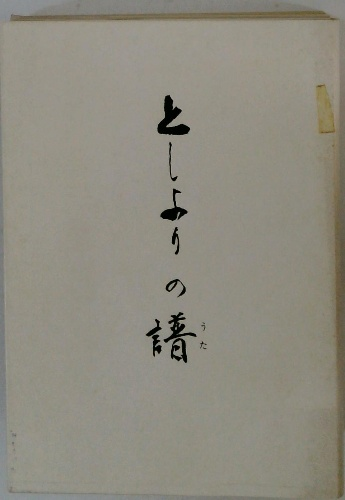 としよりの譜
うた